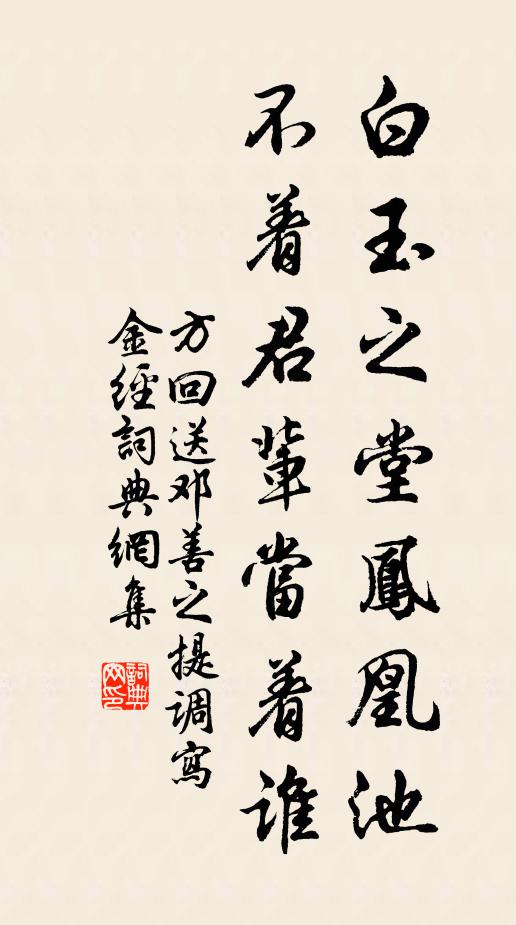 白玉之堂鳳凰池
不着君輩當着誰
方回送邓善之提調寫
金經詞典網集
詞典网印